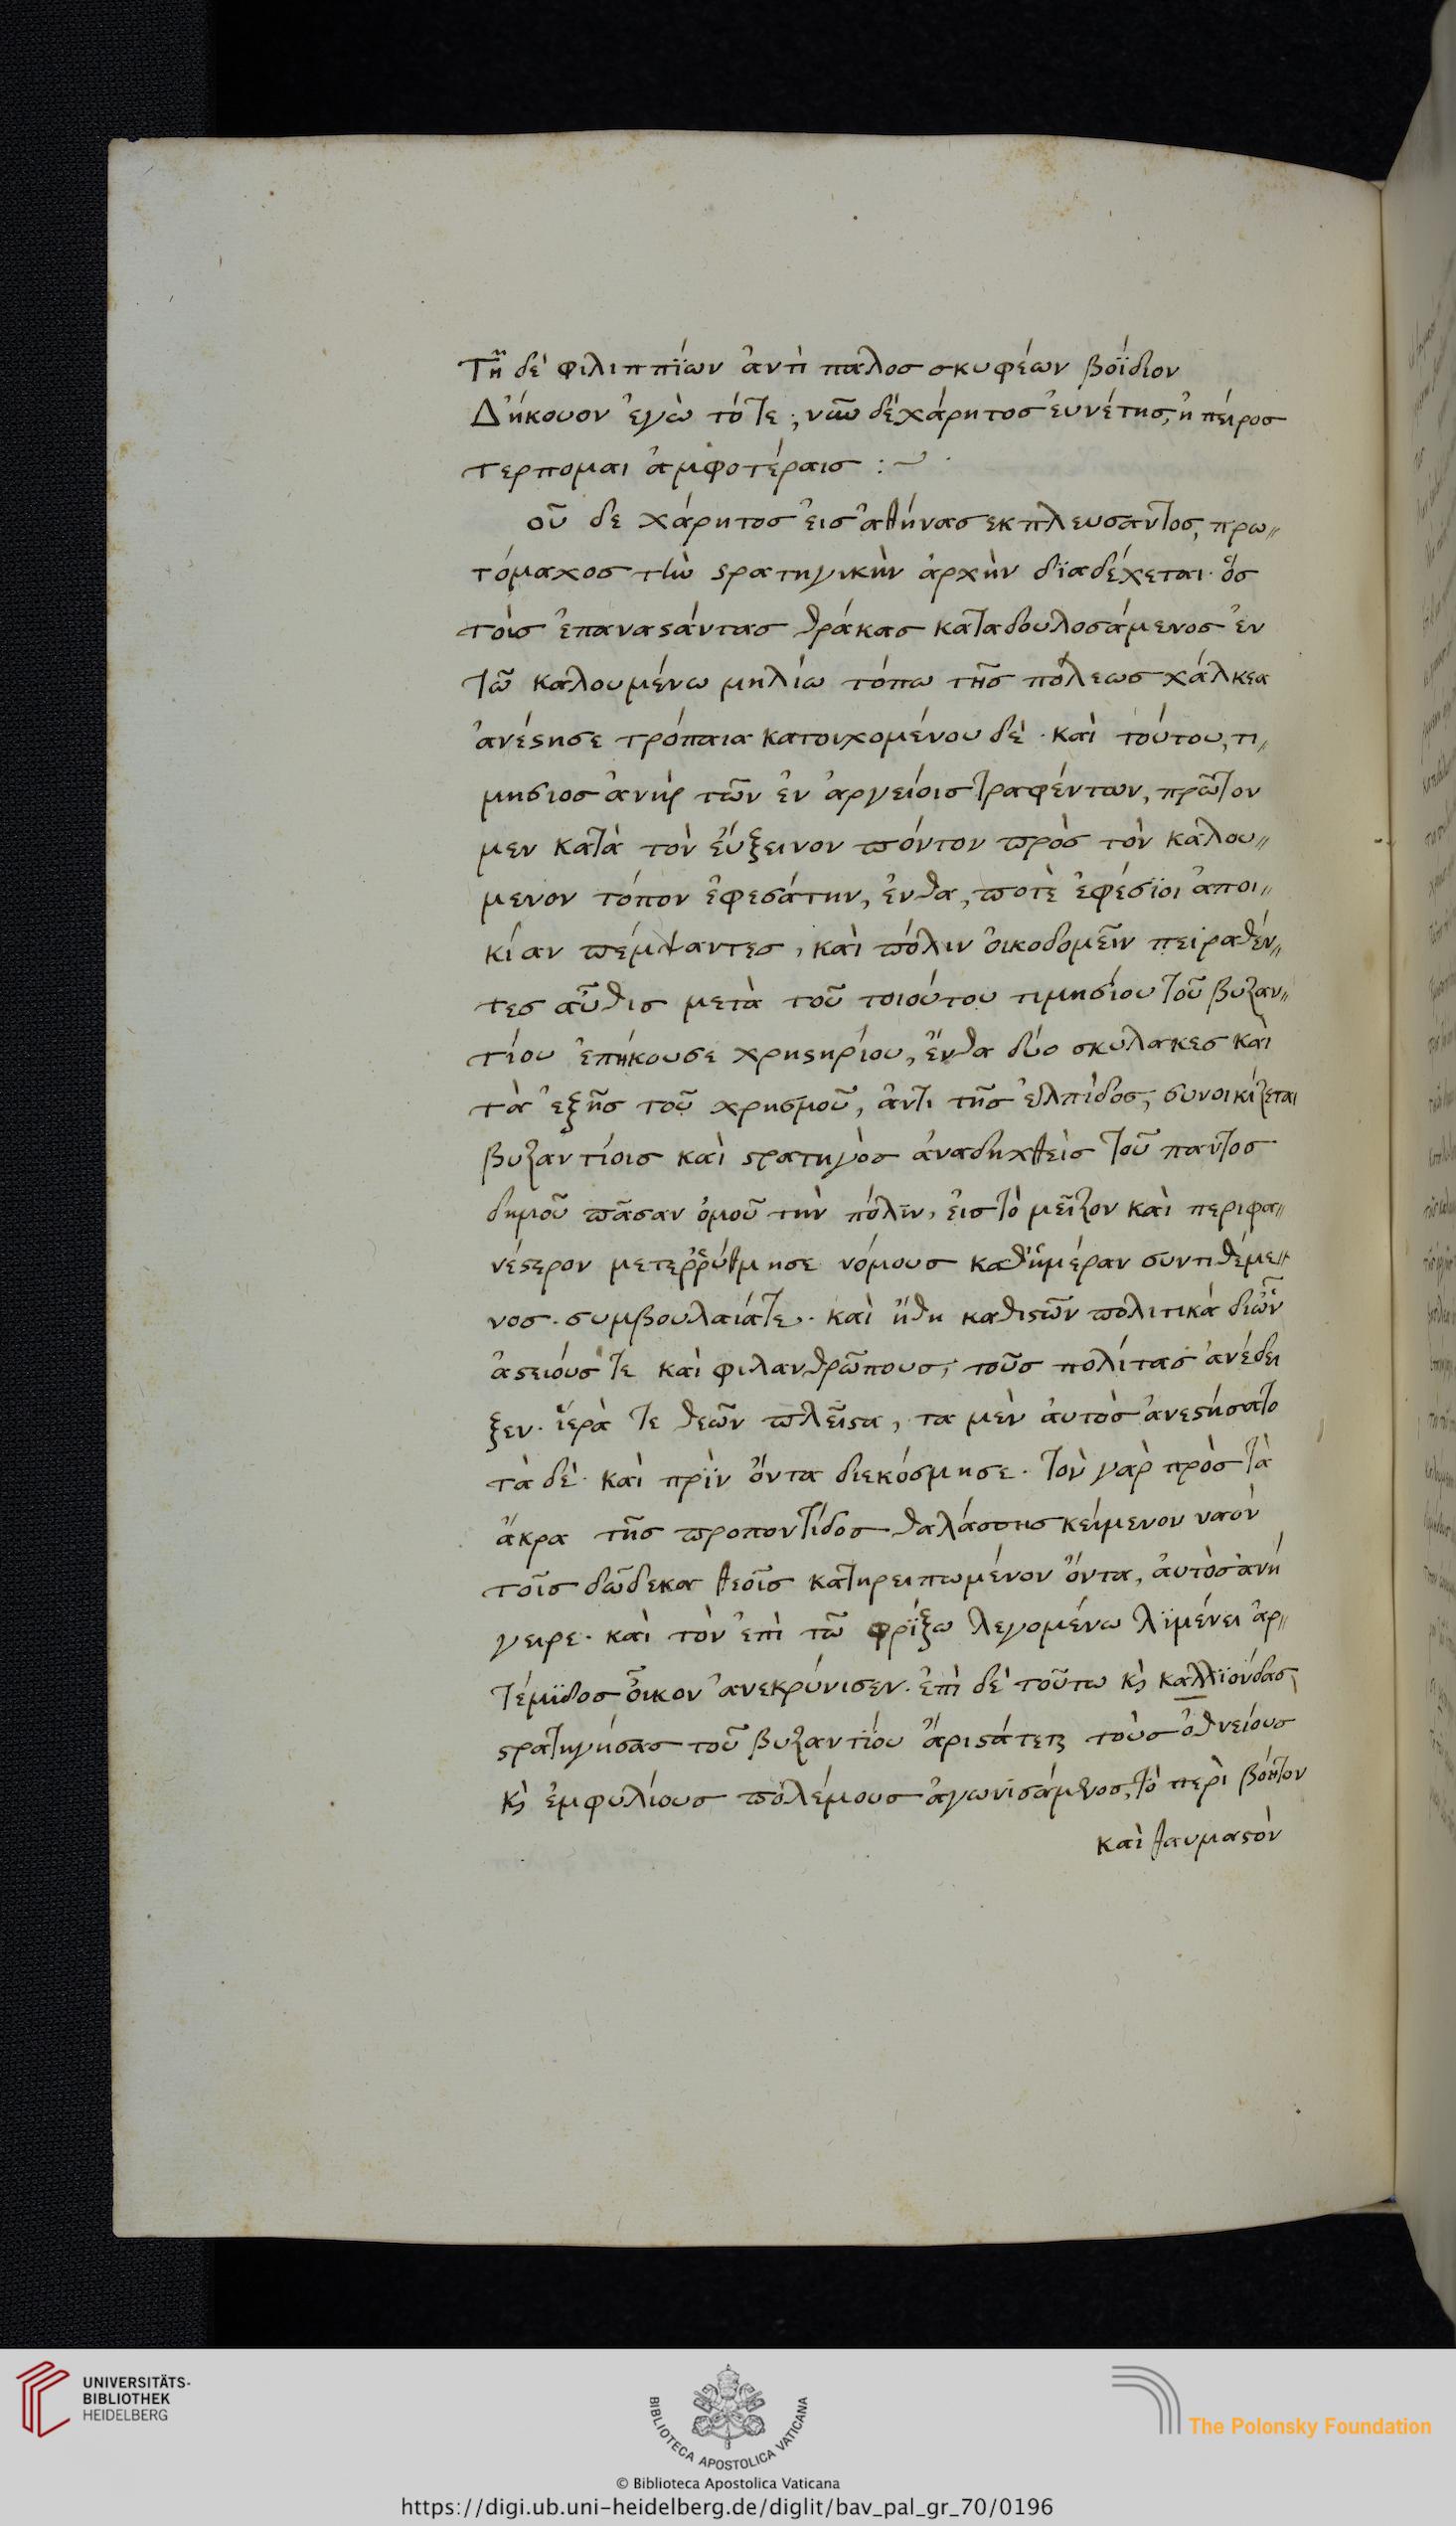 Τῆ δὲ φιλιππΐων ἀντὶ παλοσ σκυφέων βοΐδιον
Δἤκουον ἐγὼ τότε; νῶυ δὲ χάρητοσ εὐνέτησ, ἠπείροσ
τερπομαι ἀμφοτέραισ :~
οὗ δε χάρητοσ εἰσ ἀθήνασ εκπλευσαντος, πρω〃
τόμαχοσ τὴν στρατηγικὴν ἀρχὴν δϊαδέχεται· ὃσ
τοὶσ ἐπαναστάντασ θράκασ καταδουλοσάμενοσ ἐν
τῶ καλουμένω μηλίω τόπω τῆσ πόλεωσ χάλκεα
ἀνέστησε τρόπαια κατοιχομένου δὲ· καὶ τούτου, τι〃
μησιοσ ἀνὴρ τῶν ἐν ἀργείοισ τραφέντων, πρῶτον
μεν κατὰ τὸν εὔξεινον πόντον πρὸσ τὸν καλου〃
μενον τόπον ἐφεσάτην, ἐνθα, ποτὲ ἐφέσϊοι ἀποι〃
κίαν πέμψαντεσ, καὶ πόλιν οἰκοδομεῖν πειραθέν〃
τες αὖθισ μετὰ τοῦ τοιούτου τιμησίου τοῦ βυζαν〃
τίου ἐπήκουσε χρηστηρίου, ἔνθα δύο σκύλακεσ καὶ
τὰ ἑξῆσ τοῦ χρησμοῦ, ἀντι τῆσ ἐλπίδοσ, συνοικίζεται
βυζαντίοισ καὶ στρατηγὸσ ἀναδηχθεὶσ τοῦ παντοσ
δημοῦ πᾶσαν ὁμοῦ τὴν πόλϊν, εἰσ τὸ μεῖζον καὶ περιφα〃
νέστερον μετερῤῥύθμησε νόμουσ καθἡμέραν συντιθέμε〃
νοσ. συμβουλαίατε. καὶ ἤθη καθιστῶν πολιτικὰ διὧν
ἀστειόυσ τε καὶ φιλανθρῶπουσ, τοῦσ πολίτασ ἀνέδει
ξεν. ἱερὰ τε θεῶν πλεῖστα, τα μὲν ἀυτὸσ ἀνεστήσατο
τὰ δὲ. καὶ πρὶν ὄντα διεκόσμησε. τὸν γὰρ πρὸσ τὰ
ἄκρα τῆσ προποντίδοσ θαλάσσησ κείμενον ναὸν
τοῖσ δῶδεκα θεοῖσ κατηρειπωμένον ὄντα, ἀυτὸσ ἀνή
γειρε. καὶ τὸν ἐπὶ τῶ φρίξω λεγομένω λϊμένει ἀρ〃
τέμϊδοσ οἶκον ἀνεκρύνισεν. ἐπὶ δὲ τοῦτω κὶ καλλϊούδασ,
στρατηγήσασ τοῦ βυζαντϊου ἄριστάτετς τοὺσ ὀθνείουσ
κὶ ἐμφυλίουσ πολέμουσ ἀγωνϊσάμενοσ, τὸ περὶ βόητον
καὶ θαυμαστὸν
UNIVERSITÄTS-
BIBLIOTHEK
HEIDELBERG
BIBLIOTECA APOSTOLICA VATICANA
The Polonsky Foundation
© Biblioteca Apostolica Vaticana
https://digi.ub.uni-heidelberg.de/diglit/bav_pal_gr_70/0196